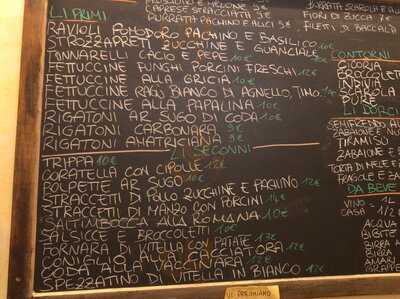 PROSCIUTTO E MELONE 9€
BURRATA PACHINO E ALICI 9€
FIORI DI ZUCCA 7€
FILETTI DI BACCALÀ
LI PRIMI
RAVIOLI POMODORO PACHINO E BASILICO 10€
STROZZAPRETI ZUCCHINE E GUANCIALE
TONNARELLI CACIO E PEPE 10€
FETTUCCINE FUNGHI PORCINI FRESCHI 12€
FETTUCCINE ALLA GRICIA 10€
FETTUCCINE RAGÙ BIANCO DI AGNELLO, TIMO
FETTUCCINE ALLA PAPALINA 10€
RIGATONI AR SUGO DI CODA 10€
RIGATONI CARBONARA 9€
RIGATONI AMATRICIANA 9€
LI SECONNI
TRIPPA 10€
CORATELLA CON CIPOLLE 12€
POLPETTE AR SUGO 10€
STRACCETTI DI POLLO ZUCCHINE E PACHINO 12€
STRACCETTI DI MANZO CON PORCINI 14€
SALTIMBOCCA ALLA ROMANA 10€
SALSICCE BROCCOLETTI 10€
FORNARA DI VITELLA CON PATATE 12€
CONIGLIO ALLA CACCIATORA 12€
CODA ALLA VACCINARA 12€
SPEZZATINO DI VITELLA IN BIANCO 12€
CONTORNI
CICORIA
BROCCOLETTI
INDIVIA
PURÈ
LI DORCI
ZABAIONE E
TIRAMISÙ
ZABAIONE E
TORTA DI MELE E
FRAGOLE E
DA BEVE
VINO - 1L
CASA 1/2
ACQUA
BIBITE
BIRRA
BIRRA
AMARI
GRAPPE